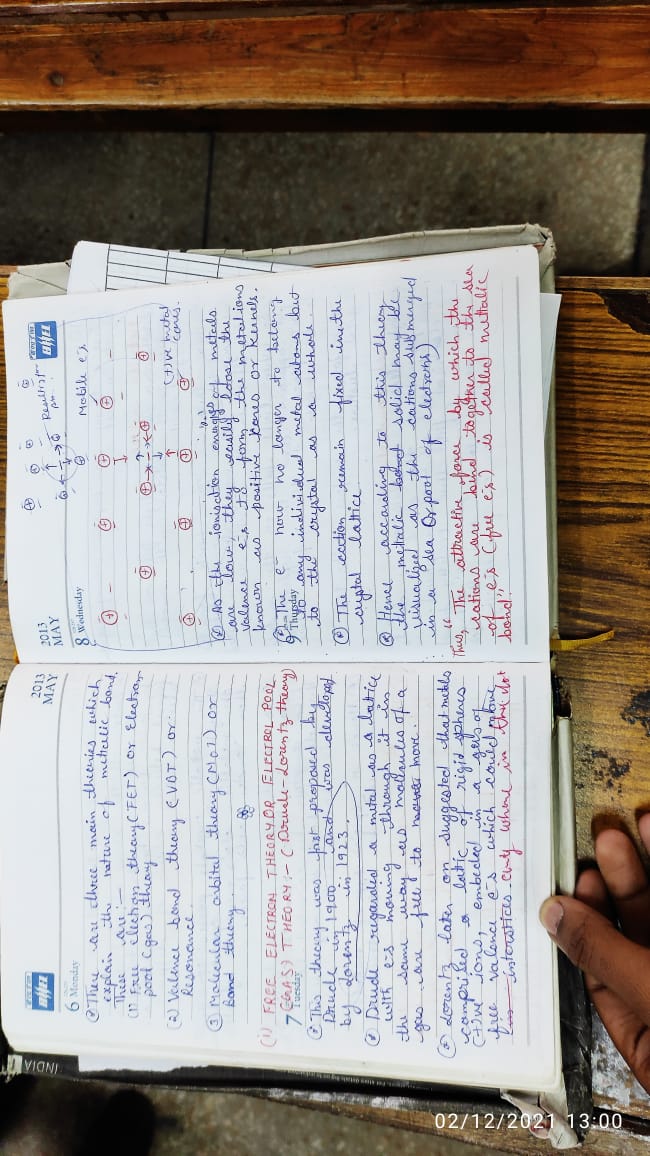 2013
MAY
6 Monday
There are three main theories which
explain the nature of metallic bond.
These are :-
(1) Free electron theory (FET) or Electron
pool (gas) theory
(2) Valence bond theory (VBT) or
Resonance.
(3) Molecular orbital theory (MOT) or
Band theory
(1) FREE ELECTRON THEORY OR ELECTROL POOL
7 Tuesday
(GAS) THEORY :- (Drude-Lorentz theory)
This theory was first proposed by
Drude in 1900 and was developed
by Lorentz in 1923.
Drude regarded a metal as a lattice
with e's moving through it in
the same way as molecules of a
gas are free to move.
Lorentz later on suggested that metals
comprised a lattic of rigid spheres
(+)ive ions, embeded in a gas of
free valence e's which could move
in the
interstices
INDIA
2013
MAY
8 Wednesday
Mobile e's.
(+)ive metal
cores.
As the ionisation energies of metals
are low, they easily loose the
valence e's to form the metal ions
known as positive cores or Kernels.
The e⁻ now no longer to belong
9 Thursday
to any individual metal atoms but
to the crystal as a whole.
The cation remain fixed in the
crystal lattice
Hence according to this theory
the metallic bond solid may be
visualized as the cations submerged
in a sea or pool of electrons)
Thus, "The attractive force by which the
cations are bind together to the sea
of e's (free e's) is called mettalic
bond."
02/12/2021 13:00